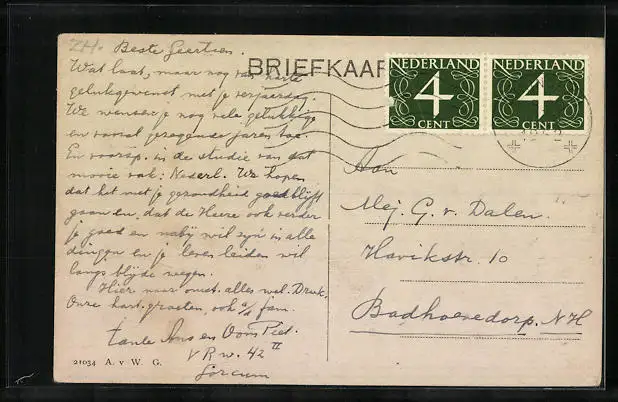 ZH. Beste Geertien.
BRIEFKAAR
Wat laat, maar nog van harte
gelukgewenst met je verjaardag.
We wensen je nog vele gelukkige
en vooral gezegende jaren toe.
En voorsp. in de studie van dat
mooie vak: Nederl. We hopen
dat het met je gezondheid goed blijft
gaan en, dat de Heere ook verder
je goed en nabij wil zijn in alle
dingen en je leven leiden wil
langs blijde wegen.
Hier naar omst. alles wel. Druk.
Onze hart. groeten, ook a/d fam.
tante Ans en Oom Piet.
V R w. 42 II
21034 A. v W. G.
NEDERLAND
4
CENT
NEDERLAND
4
CENT
Aan
Mej. G. v. Dalen.
Havikstr. 10
Badhoevedorp. NH